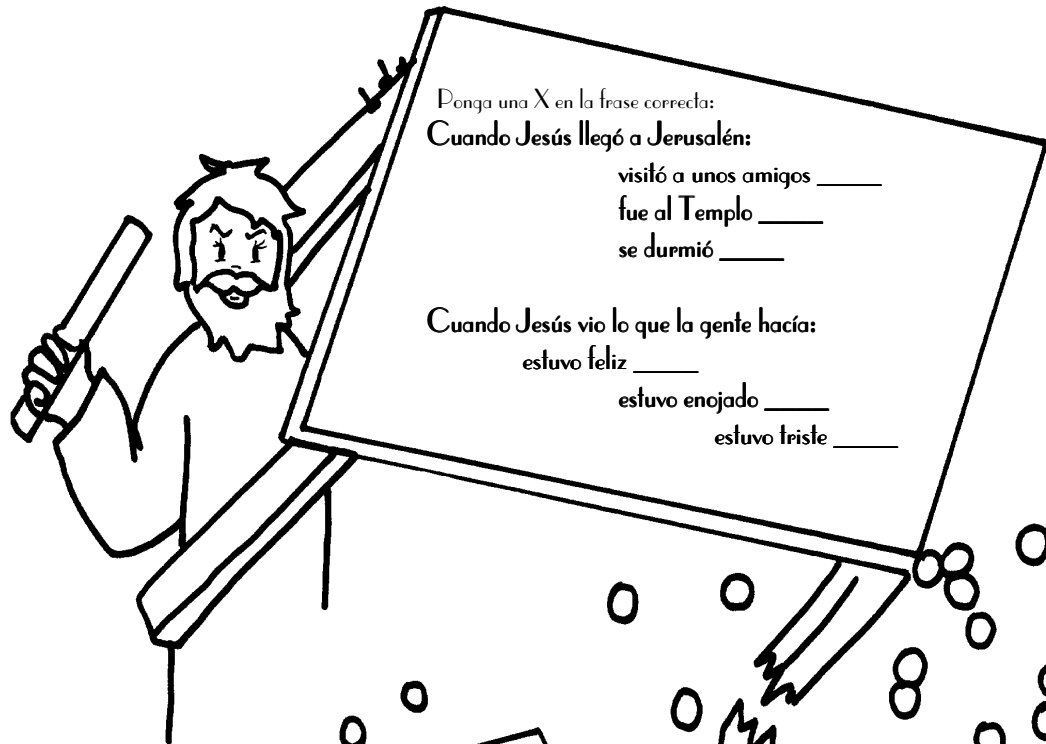 Ponga una X en la frase correcta:
Cuando Jesús llegó a Jerusalén:
visitó a unos amigos _____
fue al Templo _____
se durmió _____
Cuando Jesús vio lo que la gente hacía:
estuvo feliz _____
estuvo enojado _____
estuvo triste _____